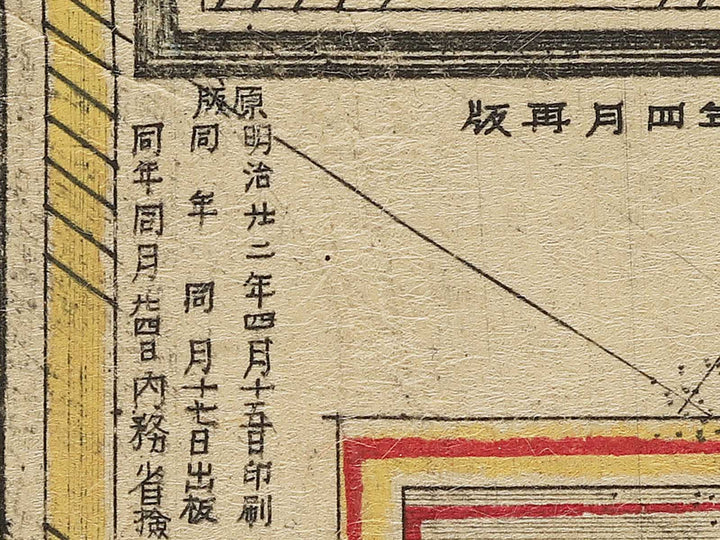 年四月再版
原版
明治廿二年四月十五日印刷
同年同月十七日出板
同年同月廿四日内務省撿